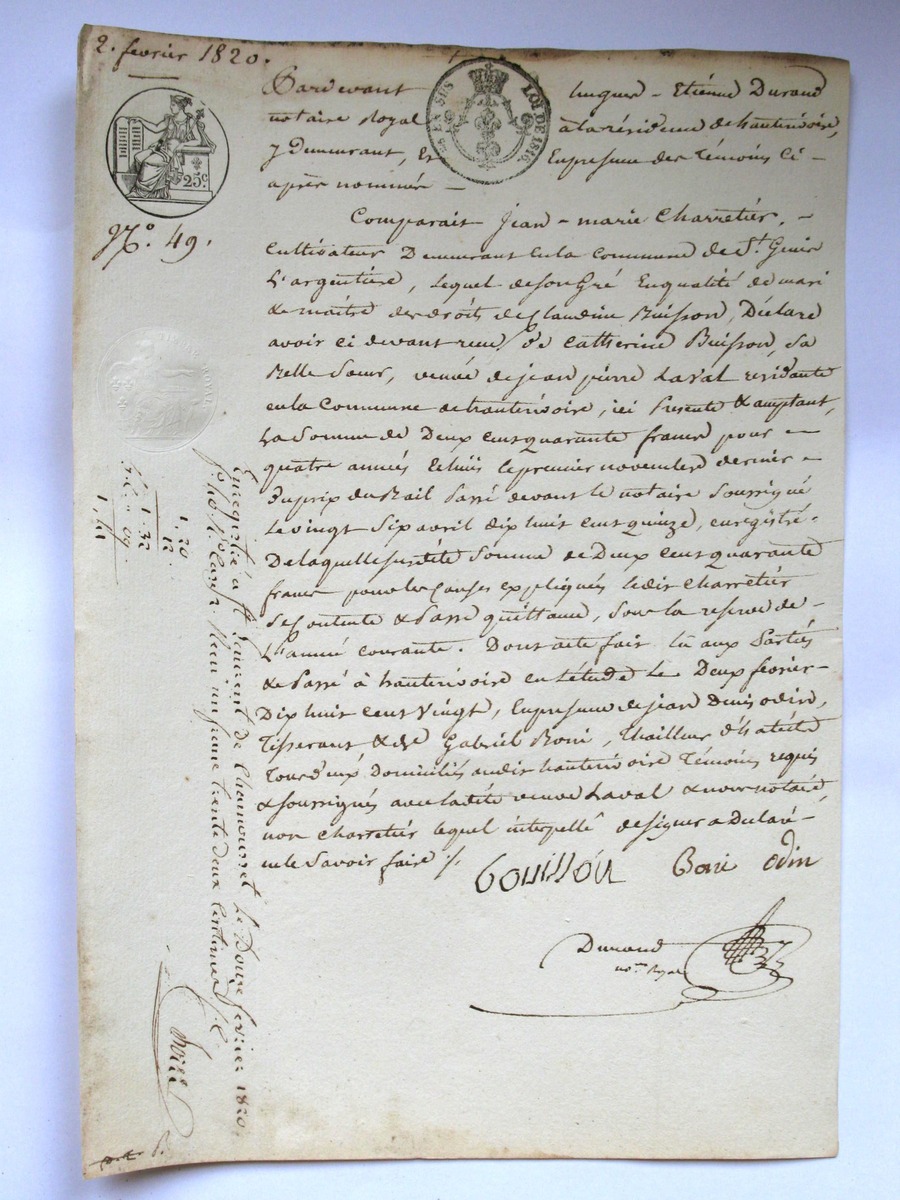 2. fevrier 1820.
Pardevant hugues - Etiénne Durand
notaire Royal à la résidence de hauterivoire,
y Demeurant, Et En presence des Témoins Ci -
après nommés -
EN SUS LOI DE 1816.
25c
No. 49.
Comparait Jean - marie Charretier, -
Cultivateur Demeurant en la Commune de St. Genis
L'argentière, lequel de son Gré En qualité de mari
& maitre des droits de Claudine Buisson, Déclare
avoir ci devant recu de Catherine Buisson, sa
Belle Soeur, veuve de jean pierre Laval residante
en la Commune de hauterivoire, ici Presente & acceptant,
La Somme de Deux cent quarante francs pour -
quatre années Echuës le premier novembre dernier -
Du prix du Bail Passé devant le notaire Soussigné
Le vingt Six avril dix huit cent quinze, enregistré.
De laquelle susdite Somme de Deux cent quarante
francs pour les Causes expliqués ledit Charretier
Se Contente & Passe quittance, Sous la reserve de -
L'année courante. Dont acte fait Lû aux Parties
& Passé à hauterivoire en L'étude Le Deux fevrier -
Dix huit Cent Vingt, En presence de jean Denis odin,
Tisserant & de Gabriel Boni, Thailleur d'habits
Tous deux Domiciliés audit hauterivoire Témoins requis
& soussignés avec laditte veuve Laval & nous notaire
non Charretier lequel interpellé de signer a Déclaré -
ne le Savoir faire /.
Bouisson Boni Odin
Durand
no.re Royal
Enregistré à St. Laurent de Chamousset Le Douze fevrier 1820.
Reçu un franc trente deux Centimes
1,20
12
1.32
09
1,41